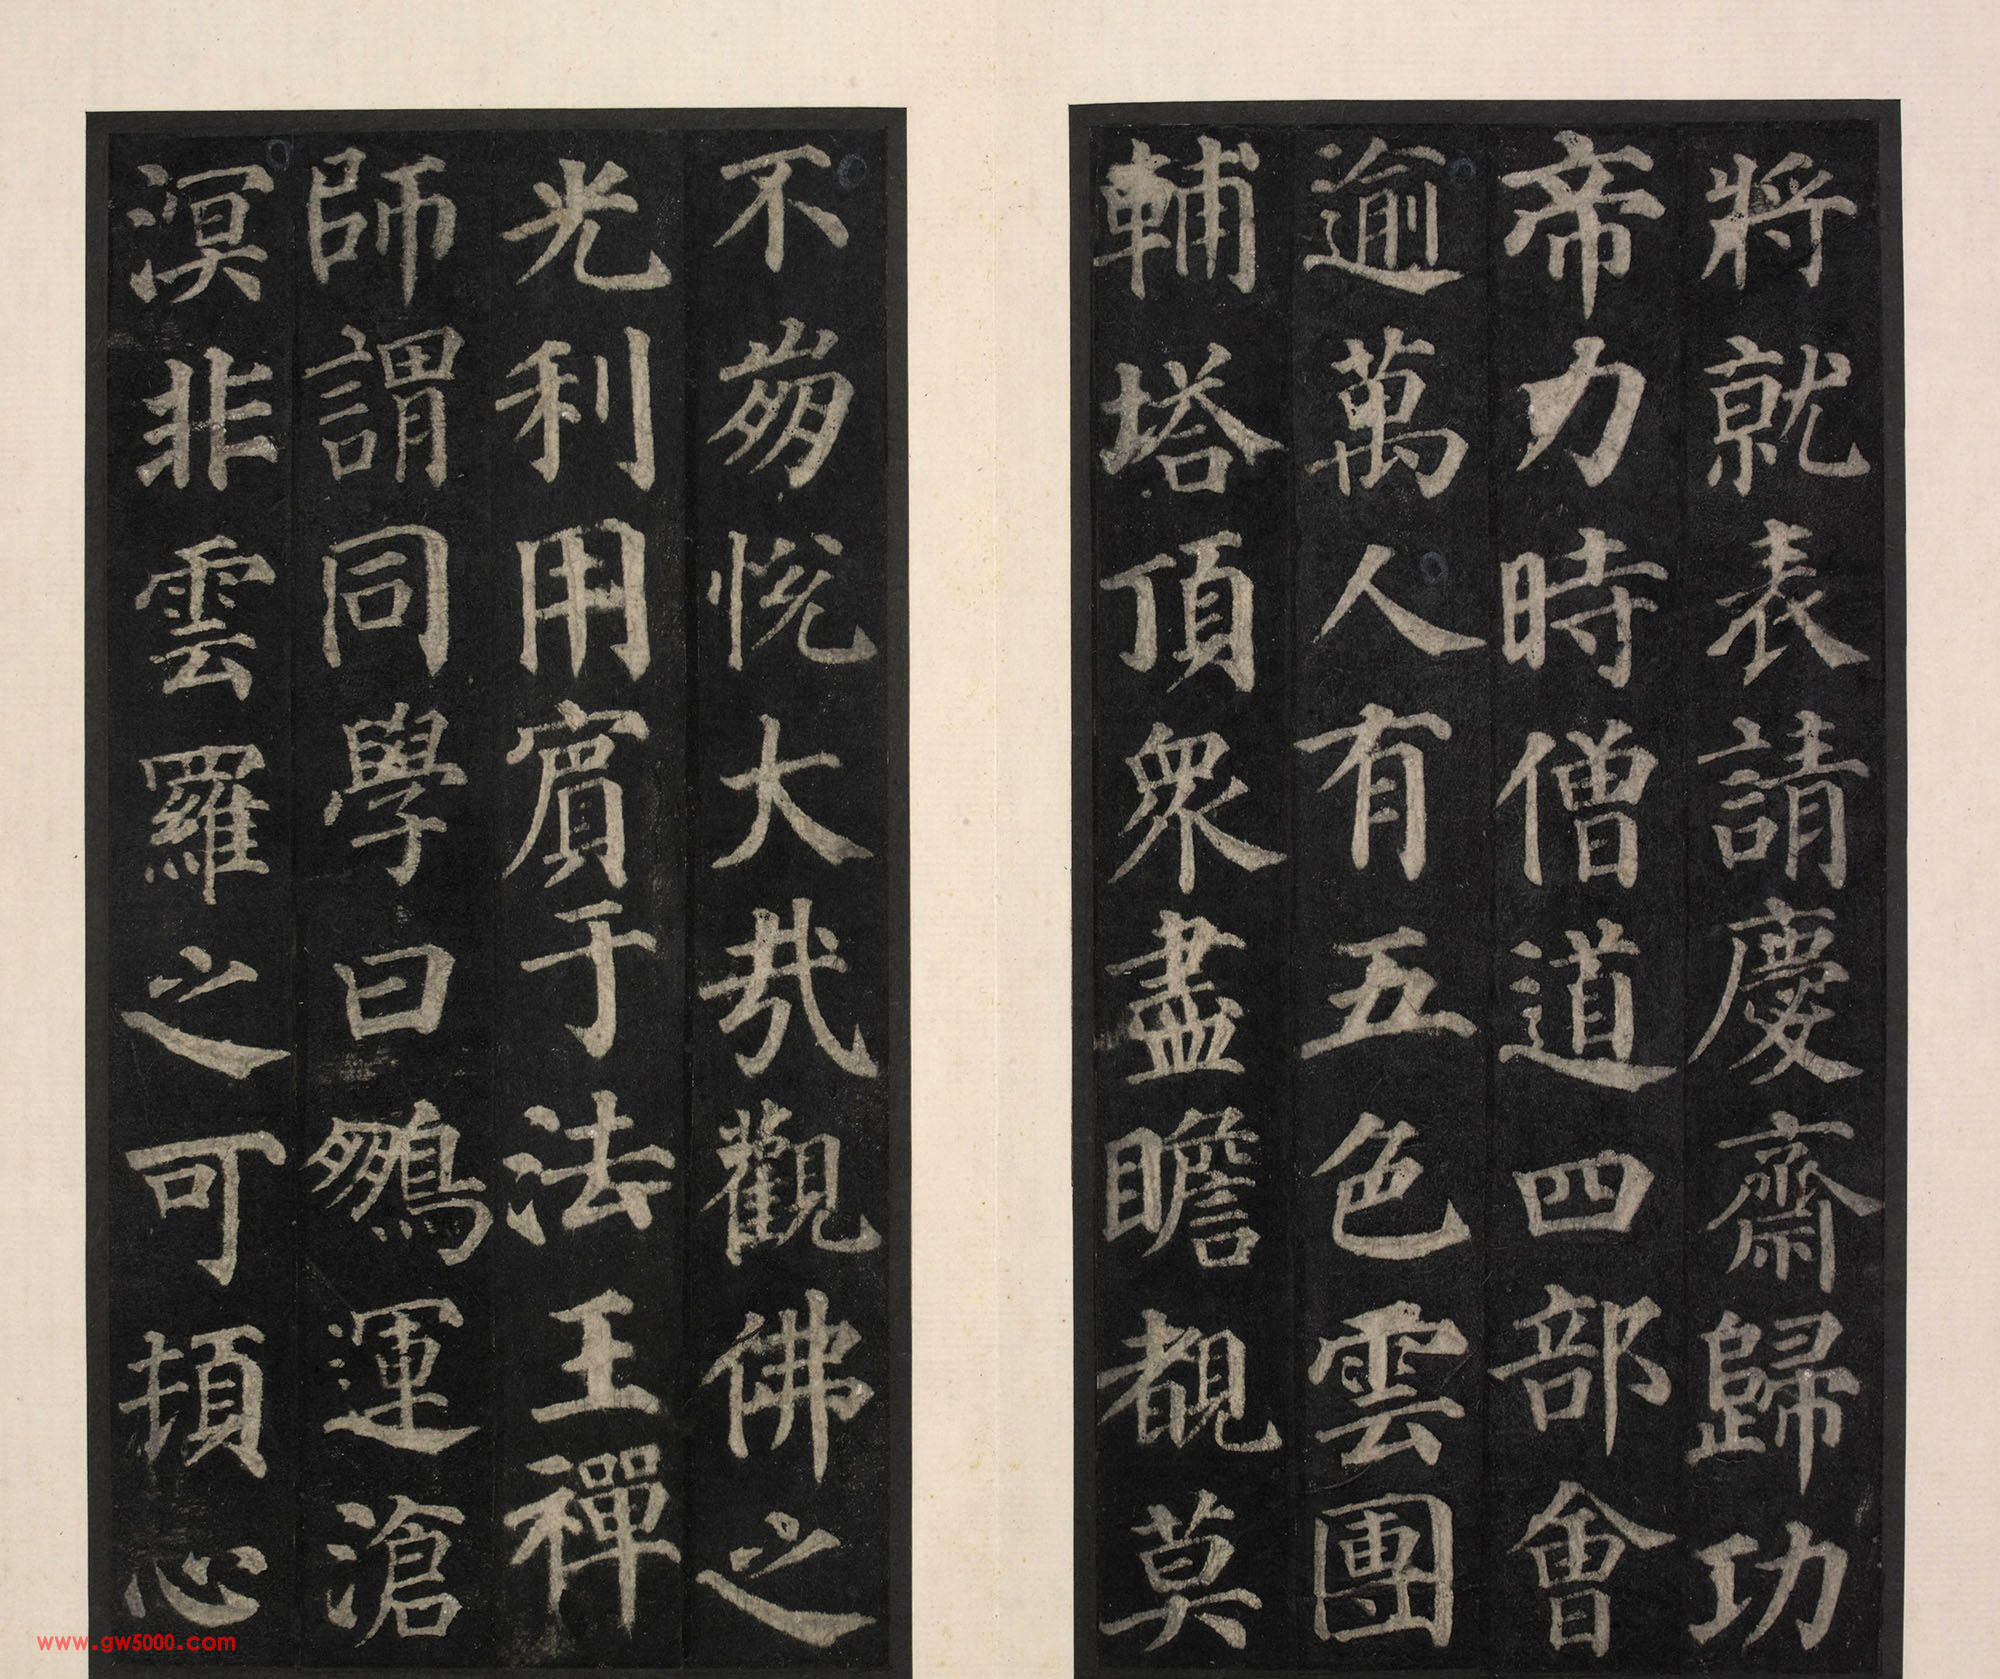 將就表請慶齋歸功
帝力時僧道四部會
逾萬人有五色雲團
輔塔頂衆盡瞻覩莫
不崩悅大哉觀佛之
光利用賓于法王禪
師謂同學曰鵬運滄
溟非雲羅之可頓心
www.gw5000.com